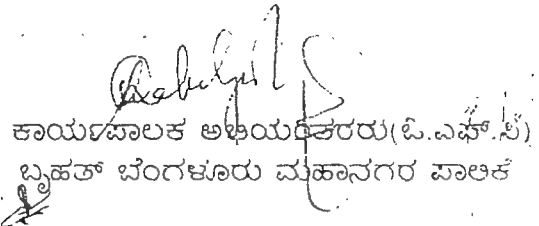 ಕಾರ್ಯಪಾಲಕ ಅಭಿಯಂತರರು(ಓ.ಎಫ್.ಸಿ)
ಬೃಹತ್ ಬೆಂಗಳೂರು ಮಹಾನಗರ ಪಾಲಿಕೆ